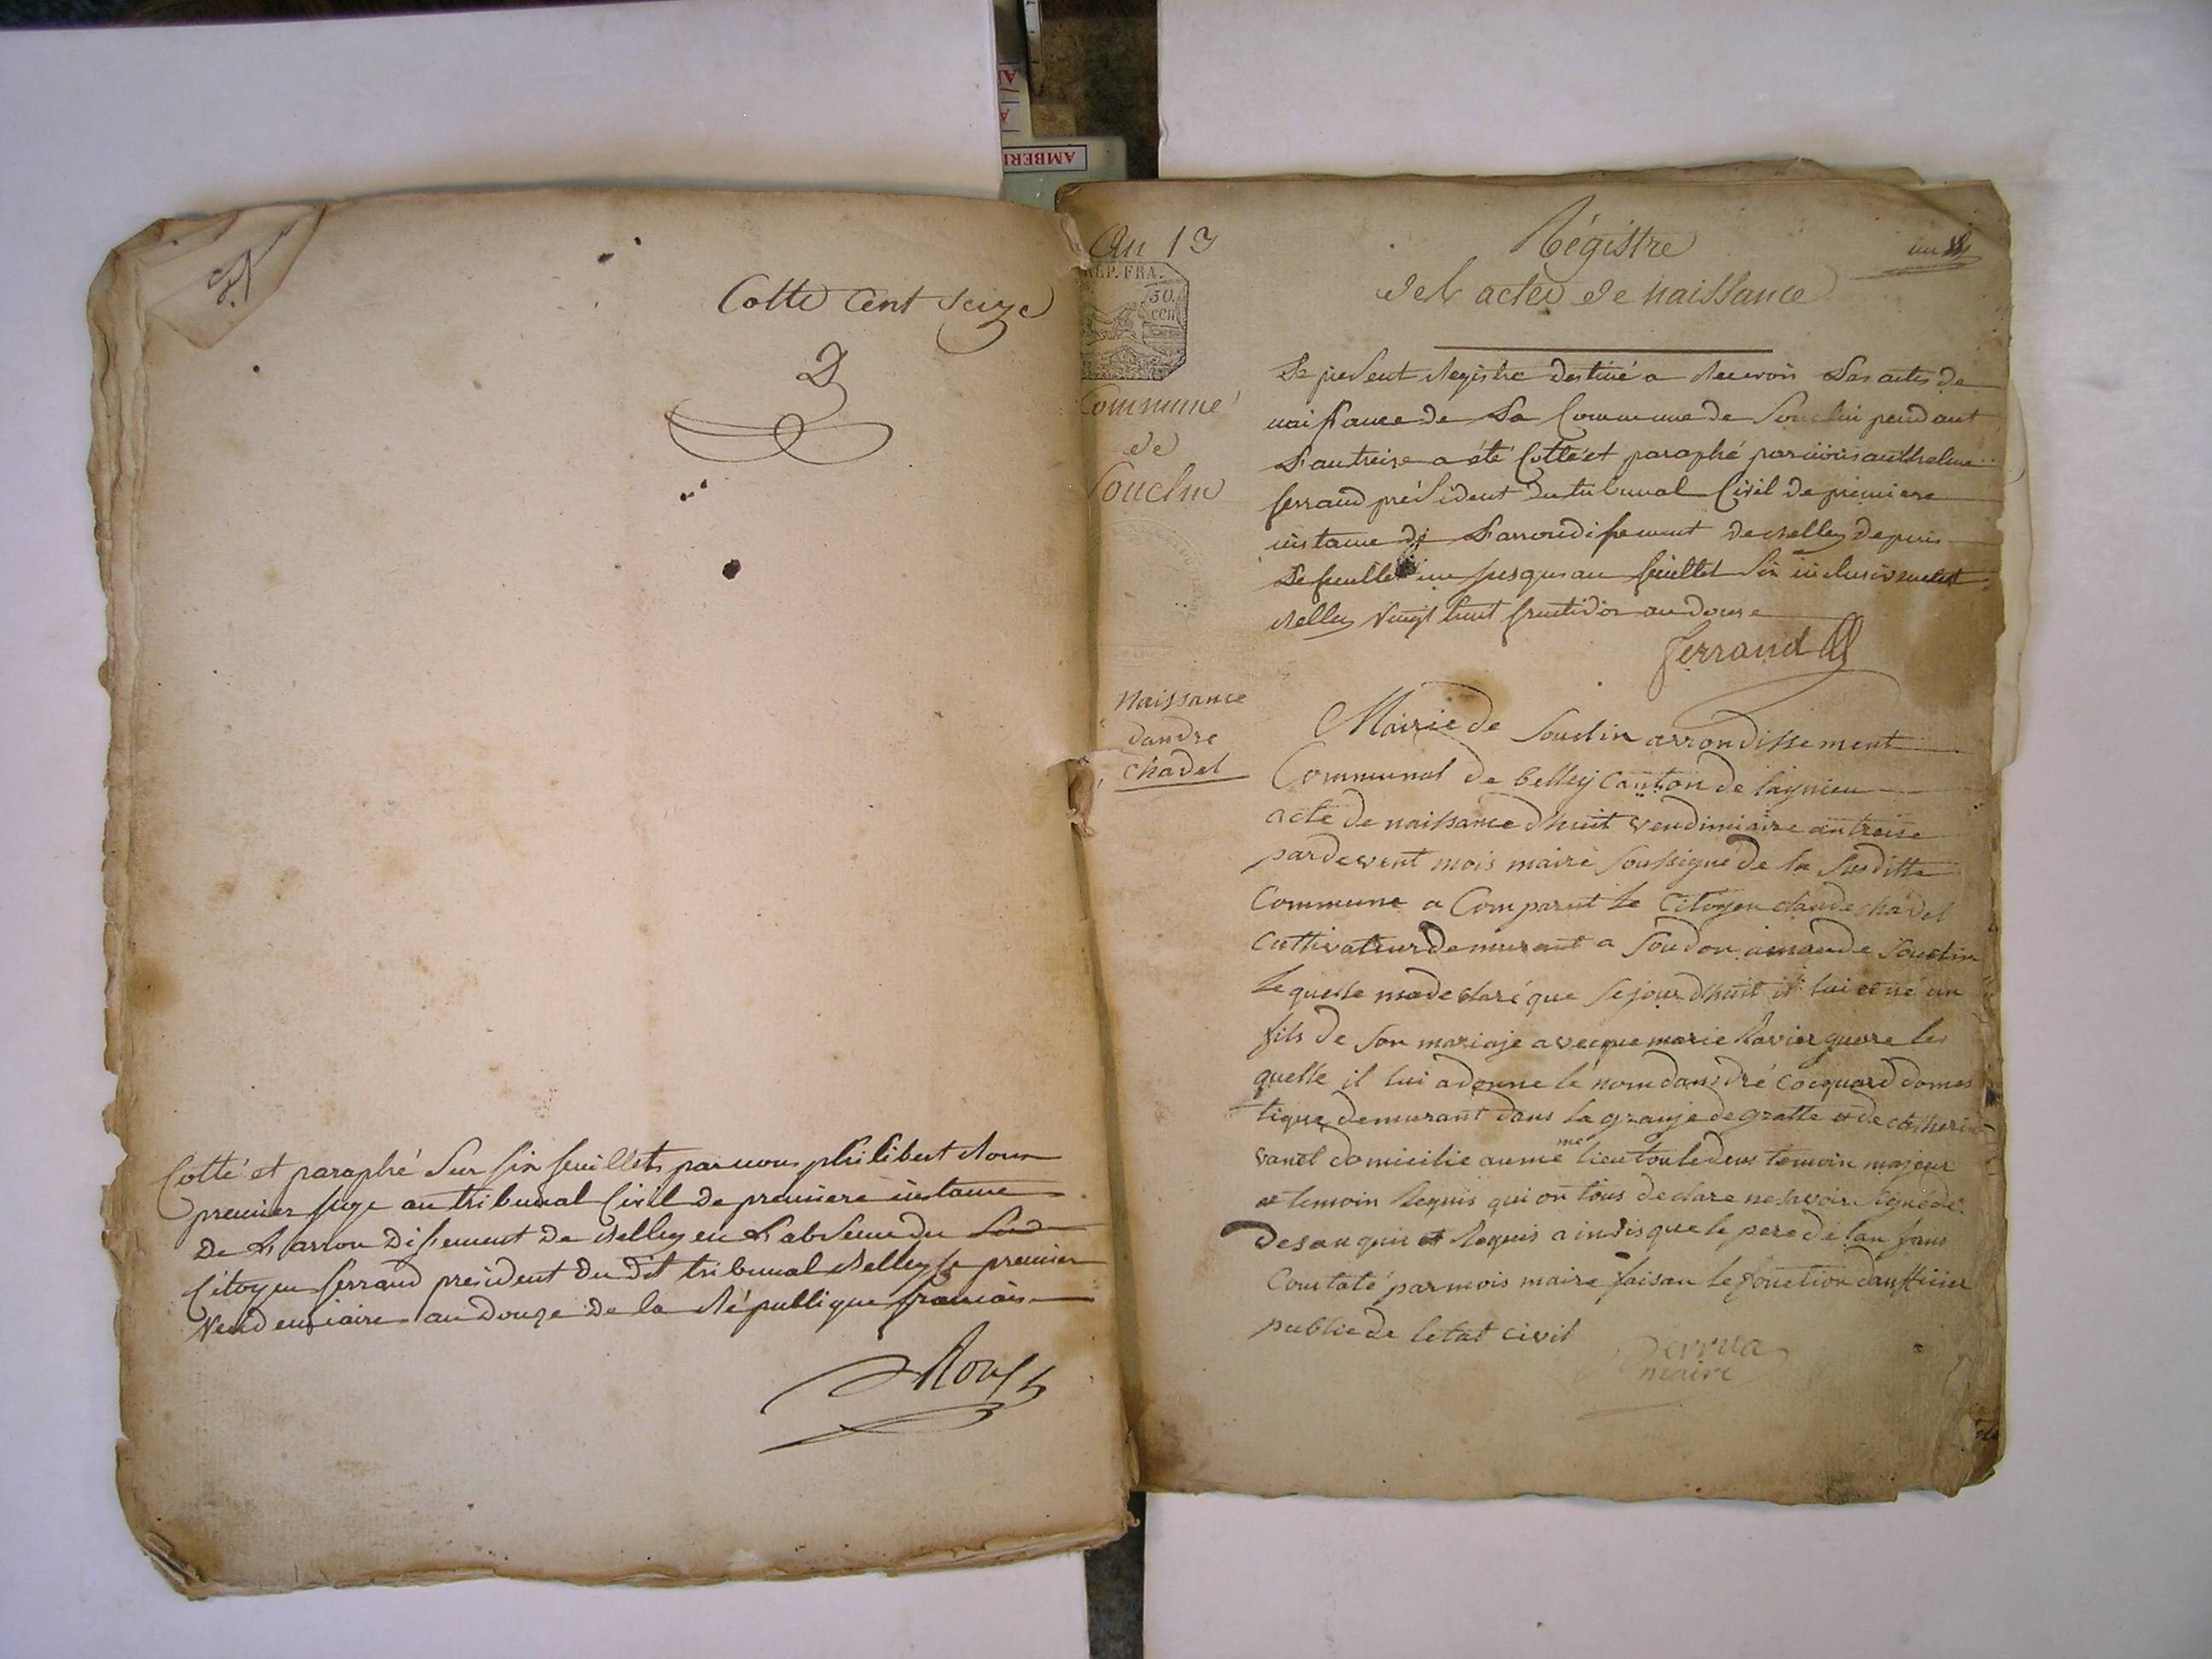 Cotte Cent Seize
Cotté et paraphé Sur six feuillets par nous philibert Roux
premier juge au tribunal Civil de premiere instance
De L'arrondissement De Belley en L'absence du
Citoyen ferrand president du dit tribunal Belley le premier
Vendemiaire an Douze De la République francais
AMBERI
An 13
REP. FRA.
50
cen
Commune
de
Souclin
Régistre
des actes de naissance
un
Le present Registre destiné a Recevoir Les actes de
naissance de La Commune de Souclin pendant
L'an treize a été Cotté et paraphé par nous anthelme
ferrand président du tribunal Civil de premiere
instance de L'arrondissement de Belley depuis
Le feuillet un jusques au feuillet Six inclusivement
Belley Vingt huit fructidor an douze
ferrand
Naissance
dandre
chadel
Mairie de Souclin arrondissement
Communal de belley Canton de lagnieu
acte de naissance dhuit vendimiaire an treise
pardevent mois maire soussigné de la susditte
Commune a Comparut le Citoyen claude chadel
Cultivateur demurant a Soudon de Souclin
lequelle ma declaré que se jour dhuit il lui et né un
fils de son mariaje avecque marie Ravier les
quelle il lui a donne le nom dandré Cocquard domes
tique demurant dans la granje de gratte et de catherine
vanel domicilie au me me lieu tou le deus temoin majeur
et temoin Requis qui on tous declare ne savoir signé de
Requis ainsis que le pere de lan fans
Contaté par mois maire faisan le fonction dauficier
public de letat civil
maire